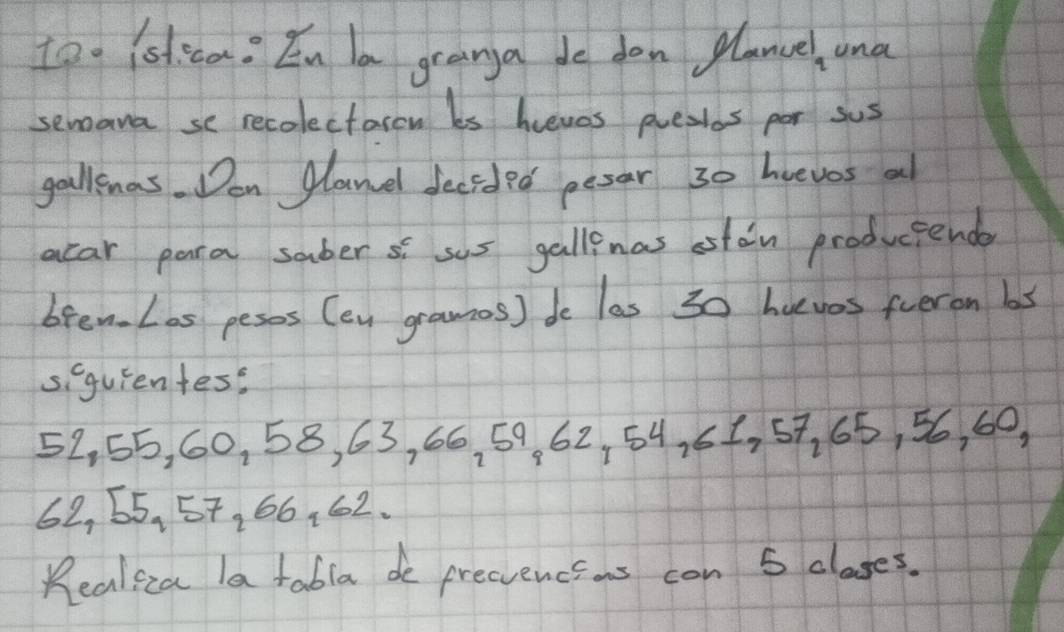 10. ística: En la granja de don Manuel, una
semana se recolectaron los huevos puestos por sus
gallinas. Don Manuel decidió pesar 30 huevos al
azar para saber si sus gallinas están produciendo
bien. Los pesos (en gramos) de los 30 huevos fueron los
siguientes:
52, 55, 60, 58, 63, 66, 59, 62, 54, 61, 57, 65, 56, 60,
62, 55, 57, 66, 62.
Realiza la tabla de frecuencias con 5 clases.